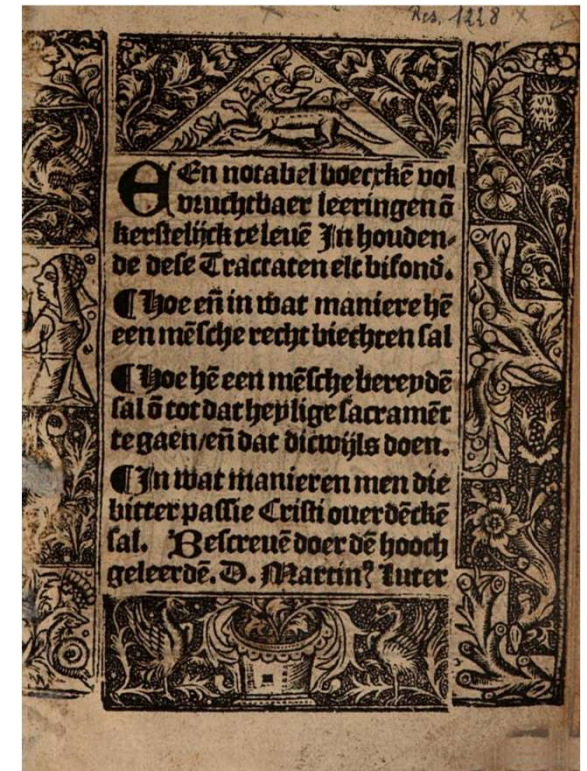 Res. 1228
EEn notabel boecxkē vol
vruchtbaer leeringen ō
kerstelijck te leuē In houden-
de dese Tractaten elc bisond.
¶ Hoe en̄ in wat maniere hē
een mēsche recht biechten sal
¶ Hoe hē een mēsche bereydē
sal ō tot dat heylige sacramēt
te gaen/en̄ dat dicwijls doen.
¶ In wat manieren men die
bitter passie Cristi ouerdēckē
sal. Bescreuē doer dē hooch
geleerdē. D. Martinꝰ luter